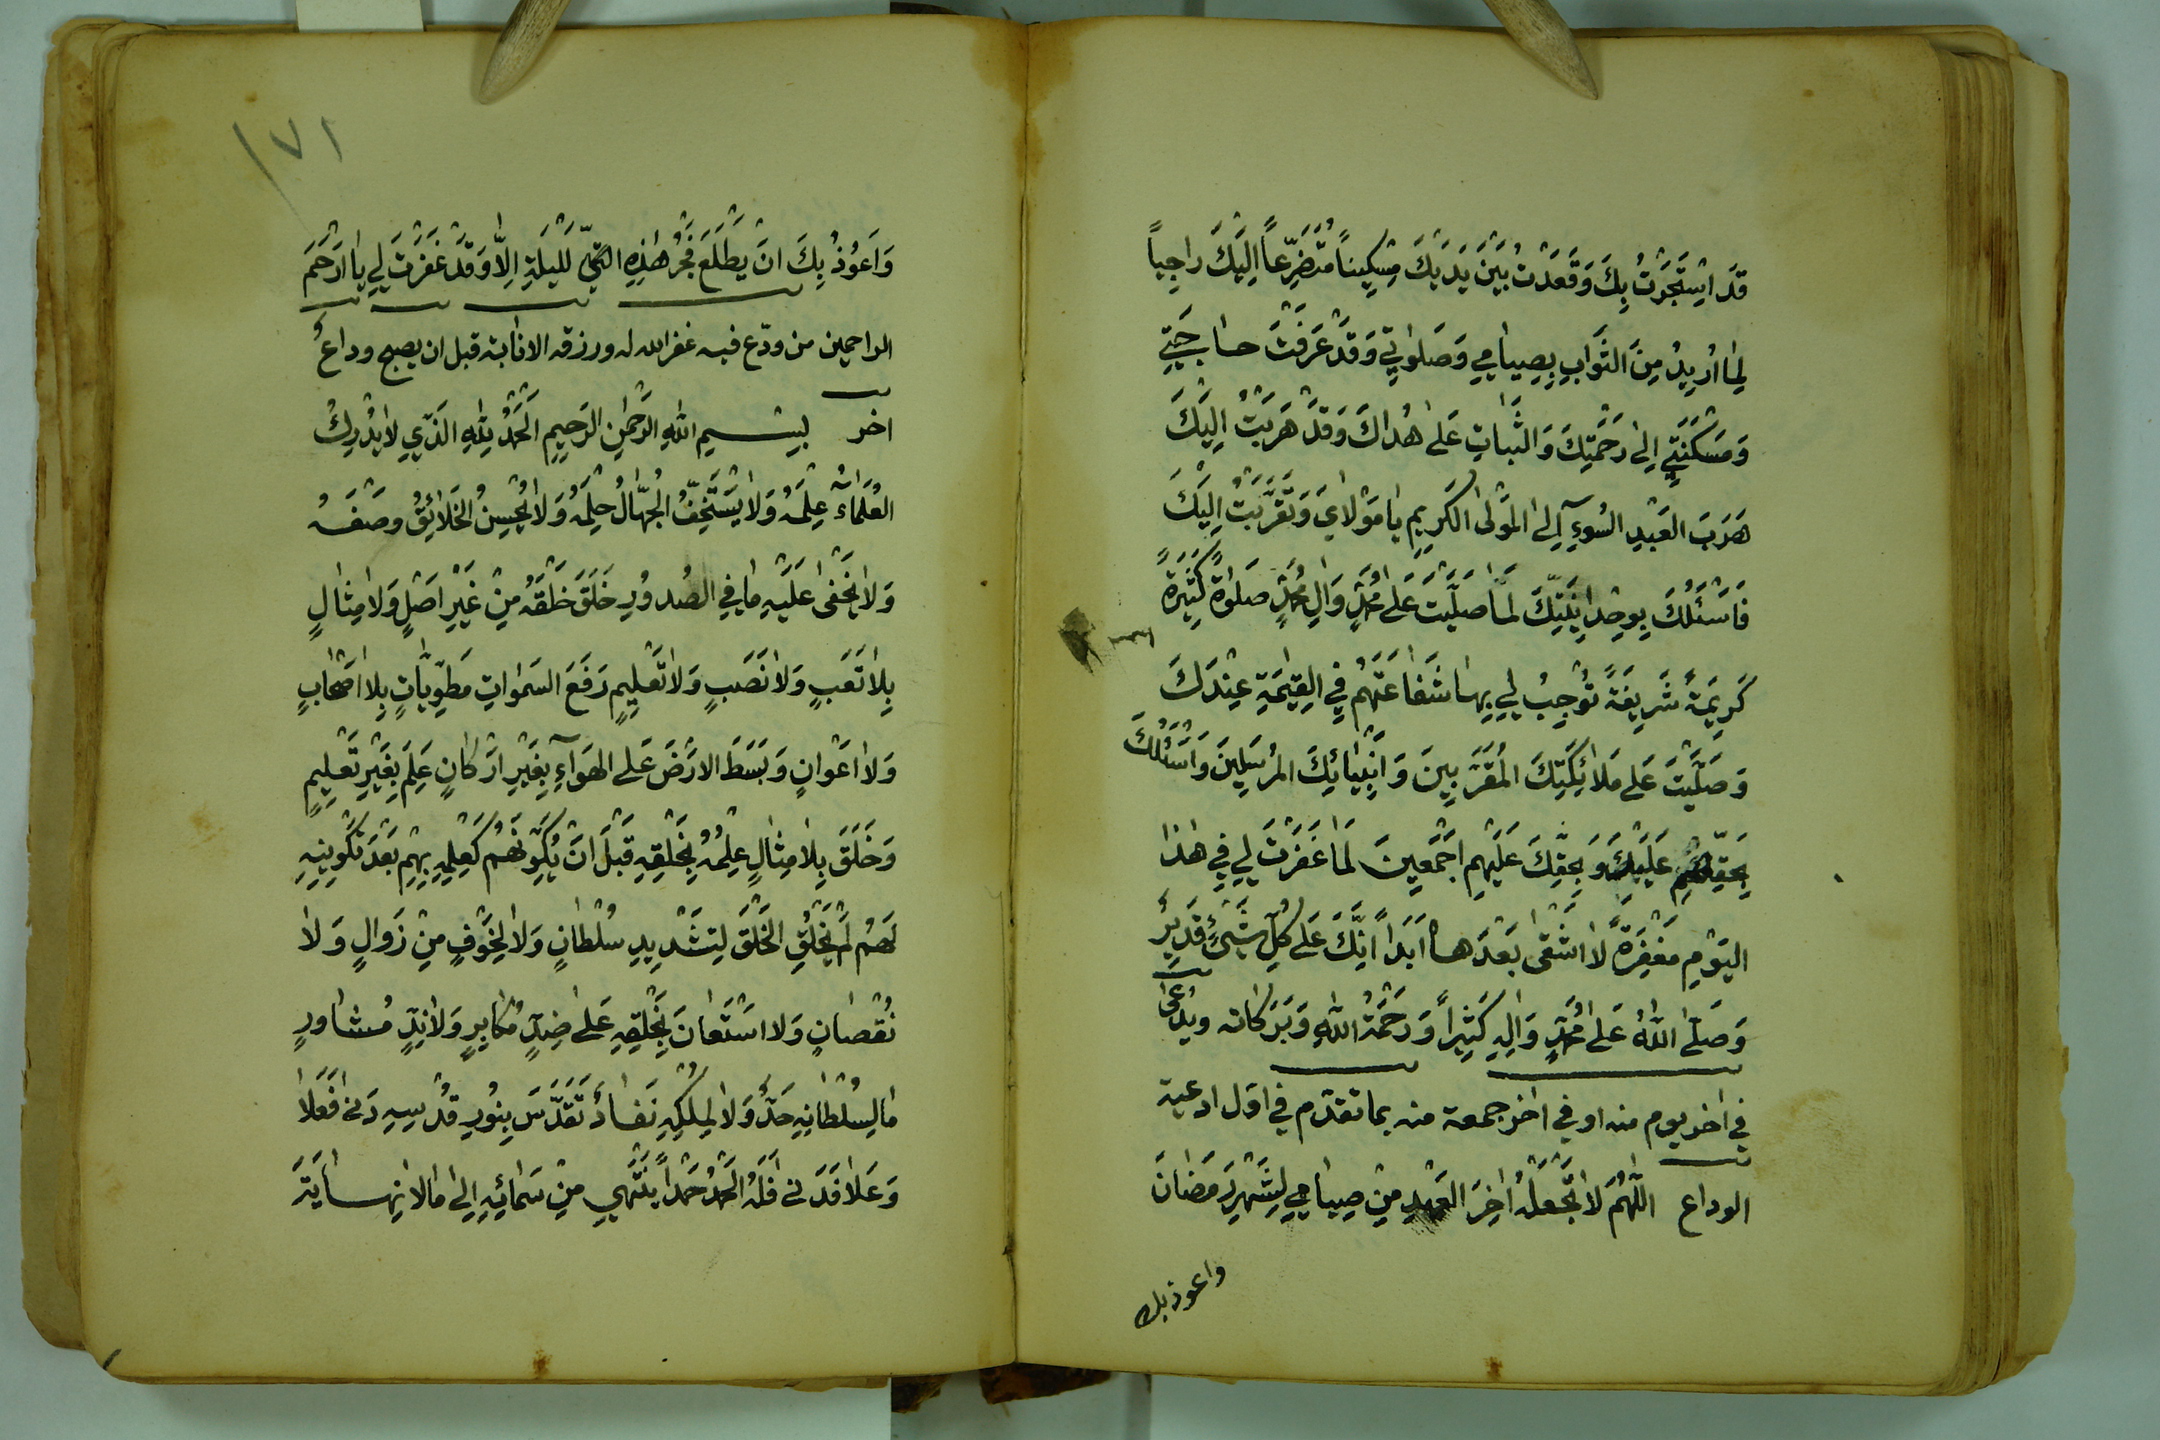 قَدِ اسْتَجَرْتُ بِكَ وَقَعَدْتُ بَيْنَ يَدَيْكَ مِسْكِيناً مُتَضَرِّعاً اِلَيْكَ راجِياً
لِما اُرِيدُ مِنَ الثَّوابِ بِصِيامِي وَصَلَوٰتِي وَقَدْ عَرَفْتَ حاجَتِي
وَمَسْكَنَتِي اِلىٰ رَحْمَتِكَ وَالثَّباتِ عَلىٰ هُداكَ وَقَدْ هَرَبْتُ اِلَيْكَ
هَرَبَ العَبْدِ السُوءِ اِلىٰ المَوْلىٰ الكَرِيمِ يا مَوْلايَ وَتَقَرَّبْتُ اِلَيْكَ
فَاَسْئَلُكَ بِوَحْدانِيَّتِكَ لَمّا صَلَّيْتَ عَلىٰ مُحَمَّدٍ وَاٰلِ مُحَمَّدٍ صَلوٰةً كَثِيرَةً
كَرِيمَةً شَرِيفَةً تُوْجِبُ لِي بِها شَفاعَتَهُمْ فِي القِيٰمَةِ عِنْدَكَ
وَصَلَّيْتَ عَلىٰ مَلاٰئِكَتِكَ المُقَرَّبِينَ وَاَنْبِيائِكَ المُرْسَلِينَ وَاَسْئَلُكَ
بِحَقِّهِمْ عَلَيْكَ وَبِحَقِّكَ عَلَيْهِم اَجْمَعِينَ لَمّا غَفَرْتَ لِي فِي هٰذا
اليَوْمِ مَغْفِرَةً لا اَشْقىٰ بَعْدَها اَبَداً اِنَّكَ عَلىٰ كُلِّ شَيْءٍ قَدِيرٌ
وَصَلَّىٰ اللّٰهُ عَلىٰ مُحَمَّدٍ وَاٰلِهِ كَثِيراً وَرَحْمَةُ اللّٰهِ وَبَرَكاته ويُدْعىٰ
في اٰخر يوم منه او في اٰخر جمعة منه بما تقدّم في اوّل ادعية
الوداع اللّٰهُمَّ لا تَجْعَلْهُ اٰخِرَ العَهْدِ مِنْ صِيامِي لِشَهْرِ رَمَضانَ
واعوذ بك
١٧١
وَاَعُوْذُ بِكَ اَنْ يَطْلَعَ فَجْرُ هٰذِهِ اللَّيْلَةِ اِلّا وَقَدْ غَفَرْتَ لِي يا اَرْحَمَ
الراحمين من ودّع فيه غفر الله له ورزقه الانابة قبل ان يصبح وداعٌ
اٰخر بِسْمِ اللّٰهِ الرَّحْمٰنِ الرَّحِيمِ اَلْحَمْدُ لِلّٰهِ الَّذِي لا يُدْرِكُ
العُلَماءُ عِلْمَهُ وَلا يَسْتَخِفُّ الجُهّالُ حِلْمَهُ وَلا يُحْسِنُ الخَلاٰئِقُ وَصْفَهُ
وَلا يَخْفىٰ عَلَيْهِ ما فِي الصُدُورِ خَلَقَ خَلْقَهُ مِنْ غَيْرِ اَصْلٍ وَلا مِثالٍ
بِلا تَعَبٍ وَلا نَصَبٍ وَلا تَعْلِيمٍ رَفَعَ السَمٰواتِ مَطْوِيّاتٍ بِلا اَصْحابٍ
وَلا اَعْوانٍ وَبَسَطَ الاَرْضَ عَلىٰ الهَوآءِ بِغَيْرِ اَرْكانٍ عَلِمَ بِغَيْرِ تَعْلِيمٍ
وَخَلَقَ بِلا مِثالٍ عِلْمُهُ بِخَلْقِهِ قَبْلَ اَنْ يُكَوِّنَهُمْ كَعِلْمِهِ بِهِمْ بَعْدَ تَكْوِينِهِ
لَهُمْ لَمْ يَخْلُقِ الخَلْقَ لِتَشْدِيدِ سُلْطانٍ وَلا لِخَوْفٍ مِنْ زَوالٍ وَلا
نُقْصانٍ وَلا اسْتَعانَ بِخَلْقِهِ عَلىٰ ضِدٍّ مُكابِرٍ وَلا نِدٍّ مُشاوِرٍ
ما لِسُلْطانِهِ حَدٌّ وَلا لِمُلْكِهِ نَفادٌ تَقَدَّسَ بِنُورِ قُدْسِهِ دَنىٰ فَعَلا
وَعَلا فَدَنىٰ فَلَهُ الحَمْدُ حَمْداً يَنْتَهِي مِنْ سَمائِهِ اِلىٰ ما لا نِهايَةَ